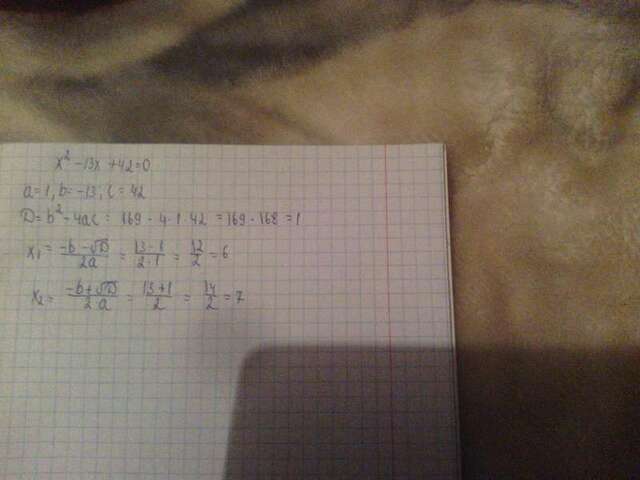 x² - 13x + 42 = 0
a = 1, b = -13, c = 42
D = b² - 4ac = 169 - 4 · 1 · 42 = 169 - 168 = 1
x₁ = (-b - √D)/(2a) = (13 - 1)/(2 · 1) = 12/2 = 6
x₂ = (-b + √D)/(2a) = (13 + 1)/2 = 14/2 = 7